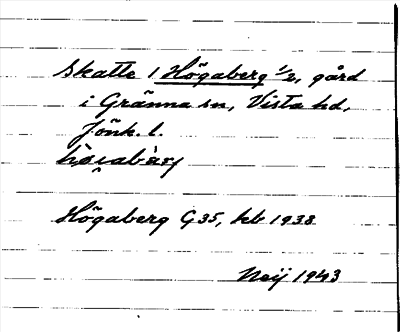 Skatte 1 Högaberg 1/2, gård
i Gränna sn, Vista hd,
Jönk. l.
Högaberg G35, kb 1938
Neij 1943